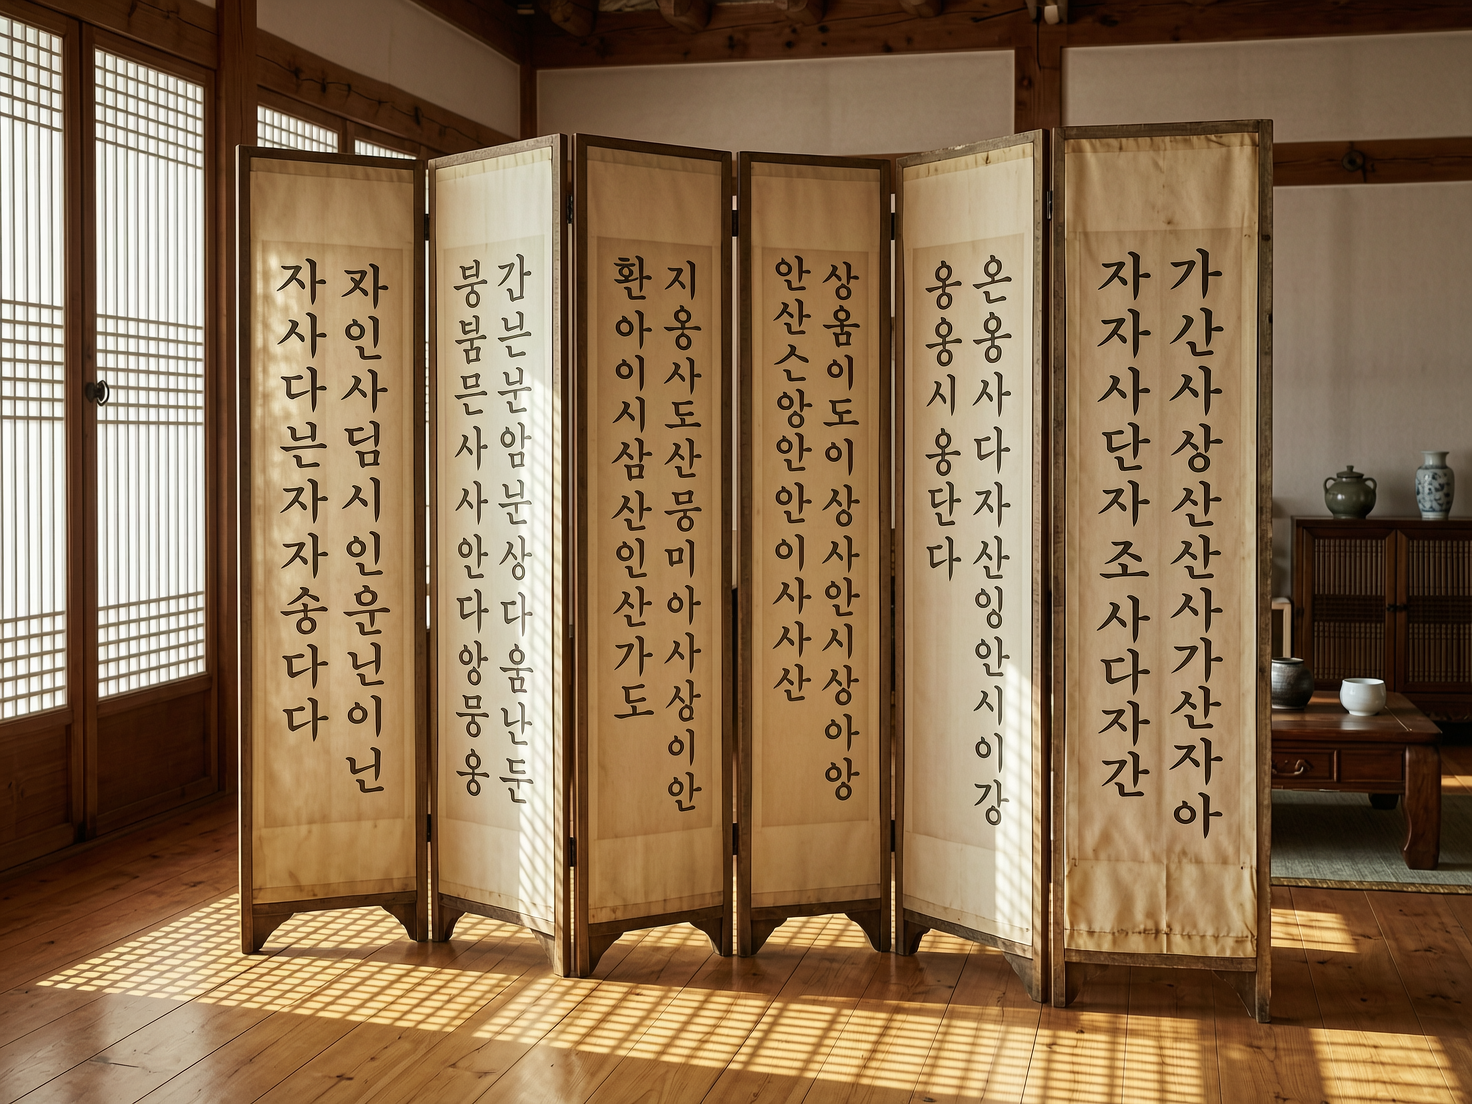 가간사상산산사가산자아
자자사단자조사다자간
온옹사다자산잉안시이강
옹옹시옹단다
상움이도이상사안시상아앙
안산슨앙안안이사사산
지옹사도산뭉미아사상이안
환아이시삼산인산가도
간븐분암분상다움난둔
붕붐믄사사안다앙뭉웅
인사딤시인운닌이닌
자사다븐자자송다다